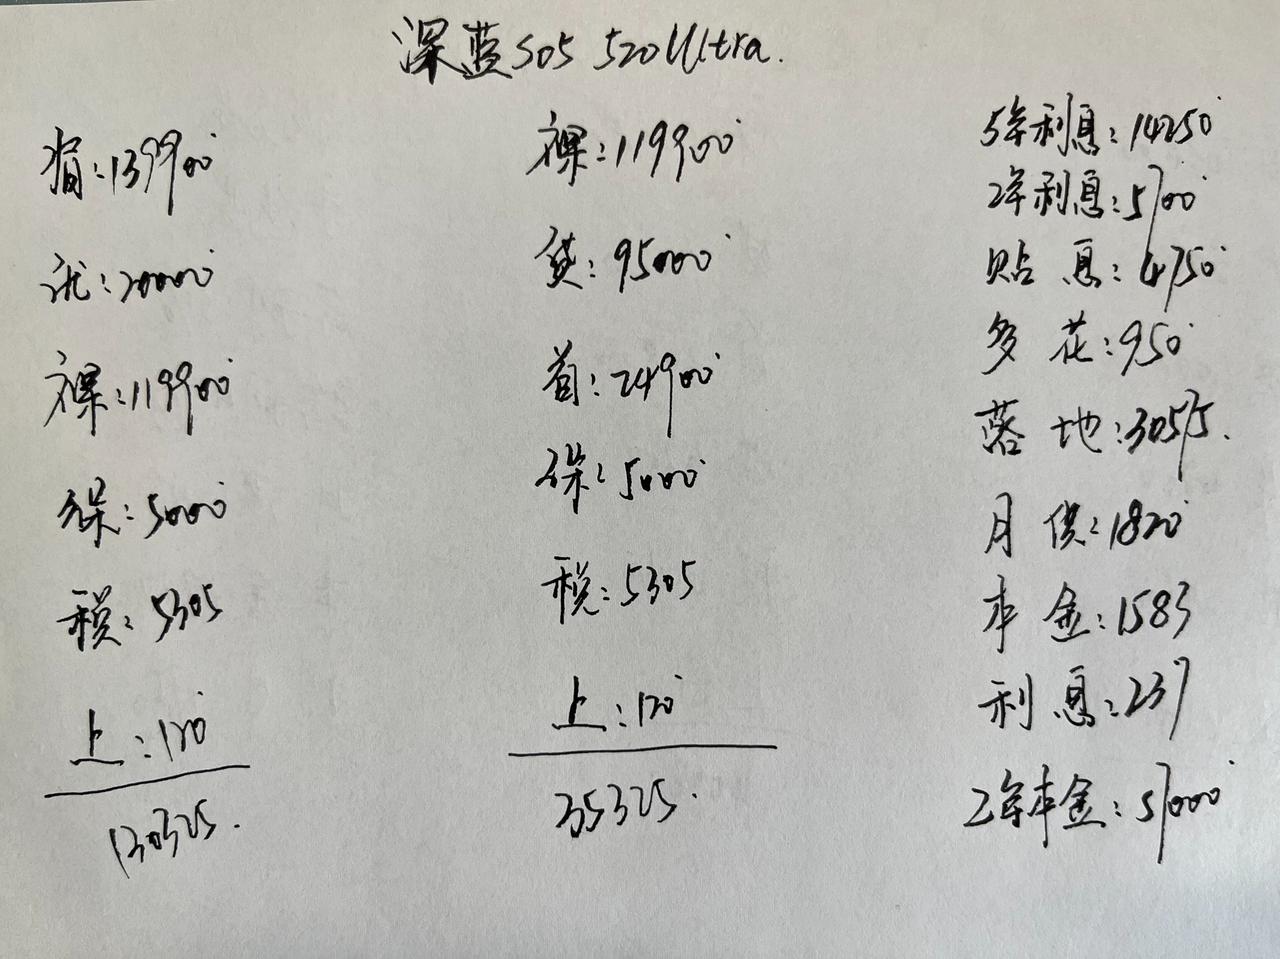 深蓝S05 520Ultra.
指:139900
优:20000
裸:119900
保:5000
税:5305
上:120
130325.
裸:119900
贷:95000
首:24900
保:5000
税:5305
上:120
35325.
5年利息:14250
2年利息:5700
贴息:4750
多花:950
落地:30575.
月供:1820
本金:1583
利息:237
2年本金:57000